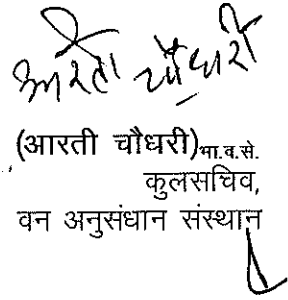 आरती चौधरी
(आरती चौधरी)भा.व.से.
कुलसचिव,
वन अनुसंधान संस्थान